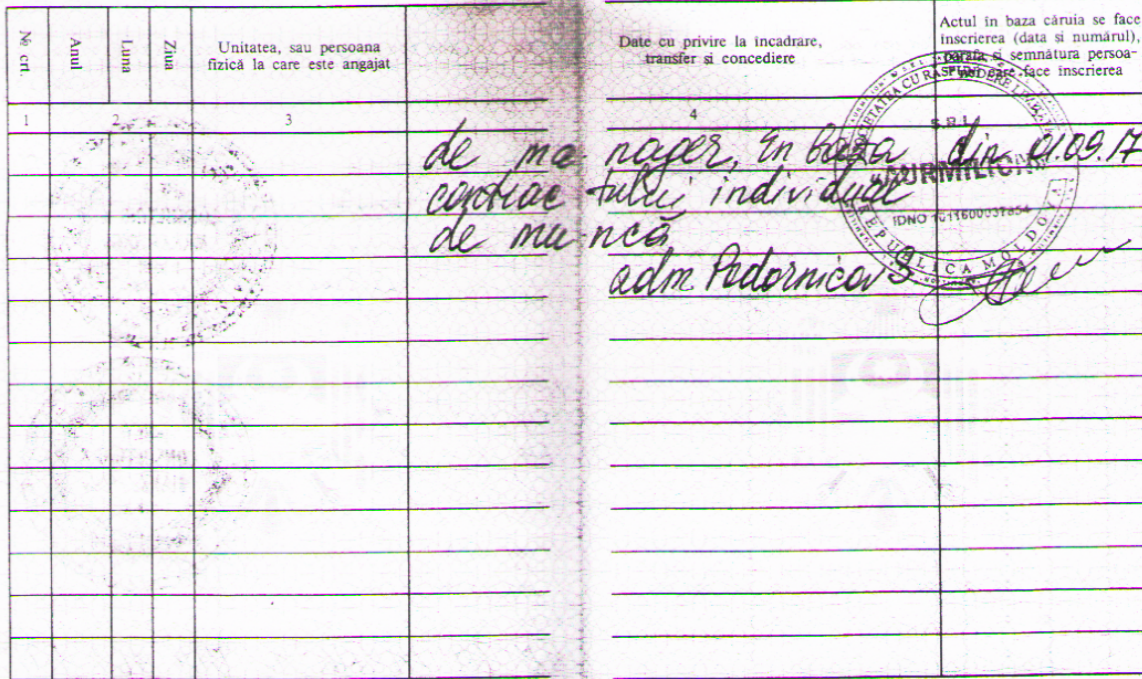 № crt.
Anul
Luna
Ziua
Unitatea, sau persoana
fizică la care este angajat
Date cu privire la incadrare,
transfer si concediere
Actul in baza căruia se face
inscrierea (data si numărul),
parafa si semnătura persoa-
nei care face inscrierea
1
2
3
4
de manager, în baza din 01.09.17
contractului individual
de muncă
adm Podornicov S
SOCIETATEA CU RĂSPUNDERE LIMITATĂ
S.R.L.
"AURMILICA"
IDNO 1011600037854
REPUBLICA MOLDOVA